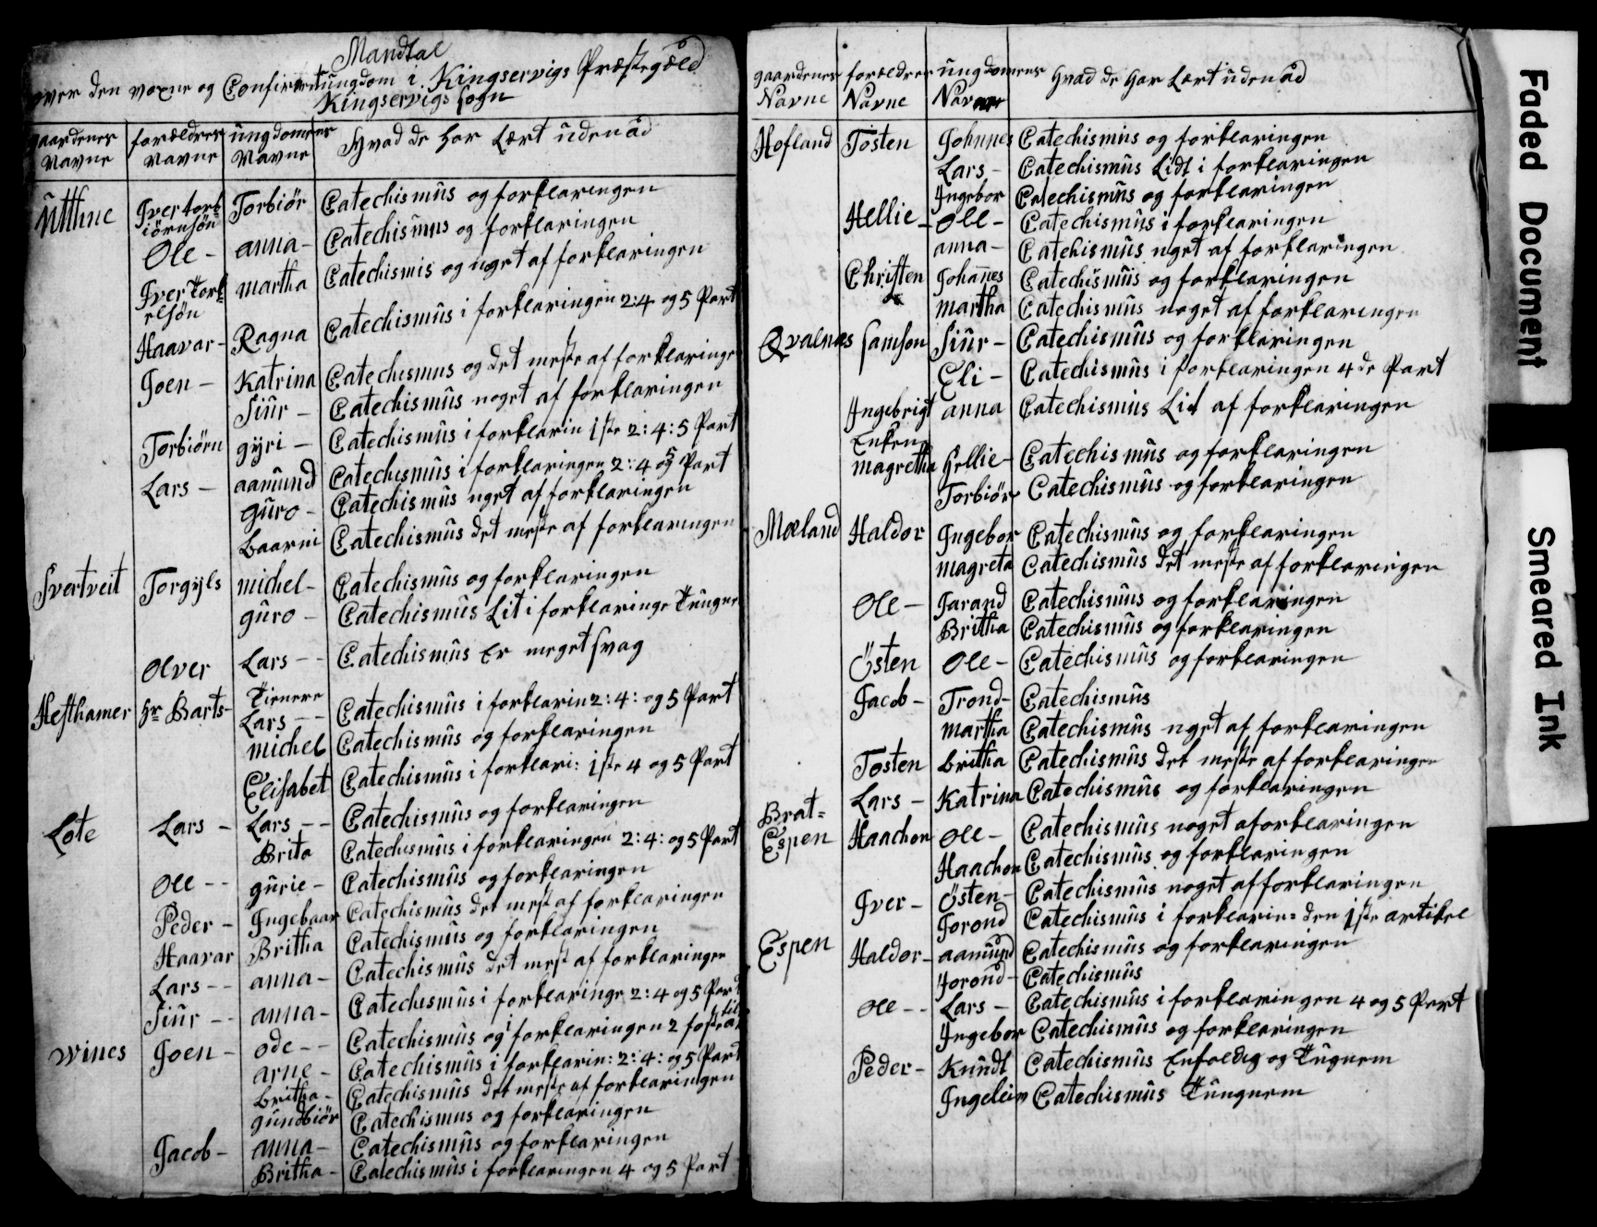 Mandtal
over den voxne og Confirert ungdom i Kingservigs Præstegæld
Kingservigs Sogn
gaardenes Navne forældres Navne ungdomens Navne Hvad de har Lært uden ad
Utthne Iver torbiörnsön Torbiör Catechismus og forklaringen
Ole - anna - Catechismus og forklaringen
Iver Torkelsön martha Catechismis og noget af forklaringen
Haavar - Ragna Catechismus i forklaringen 2:4 og 5 Part
Joen - Katrina Catechismus og det meste af forklaringe
Siur - Catechismus noget af forklaringen
Torbiörn gyri - Catechismus i forklarin 1ste 2:4:5 Part
Lars - aamund Catechismus i forklaringen 2:4 og 5 Part
guro - Catechismus nget af forklaringen
Baarni Catechismus det meste af forklaringen
Svertveit Torgyls michel - Catechismus og forklaringen
guro - Catechismus Lit i forklaringe
Olver Lars - - Catechismus Er meget svag
Hesthamer Hr Barts - Tienere
Lars - - Catechismus i forklarin 2:4: og 5 Part
michel Catechismus og forklaringen
Elisabet Catechismus i forklari: 1ste 4 og 5 Part
Lote Lars - Lars - - Catechismus og forklaringen
Brita Catechismus i forklaringen 2:4: og 5 Part
Ole - - gurie - Catechismus og forklaringen
Peder - Ingebaar Catechismus det mest af forklaringen
Haavar Britha Catechismus og forklaringen
Lars - - anna - Catechismus det mest af forklaringen
Siur - - anna - Catechismus i forklaringe 2:4 og 5 Part
Wines Joen - Ode - - Catechismus og i forklaringen 2 første
arne - Catechismus i forklarin: 2:4: og 5 Part
Britha - Catechismus det meste af forklaringen
gundbiör Catechismus og forklaringen
Jacob - anna - Catechismus og forklaringen
Britha - Catechismus i forklaringen 4 og 5 Part
gaardenes Navne forældres Navne ungdomens Navne Hvad de har Lært uden ad
Hofland Tosten Johnnes Catechismus og forklaringen
Lars - Catechismus Lidt i forklaringen
Ingebor Catechismus og forklaringen
Hellie - Ole - Catechismus i forklaringen
anna - Catehismus nget af forklaringen
Christen Johannes Catechismus og forklaringen
martha Catechismus noget af forklaringen
Qvalnæs Samson Siur - Catechismus og forklaringen
Eli - Catechismus i forklaringen 4de Part
Ingebrigt anna Catechismus Lid af forklaringen
Enken magretha Hellie - Catechismus og forklaringen
Torbiör Catechismus og forklaringen
Mæland Haldor Ingebor Catechismus og forklaringen
magreta Catechismus det meste af forklaringen
Ole - Jarand Catechismus og forklaringen
Britha Catechismus og forklaringen
Östen Ole - Catechismus og forklaringen
Jacob - Trond - Catechismus
martha Catechismus nget af forklaringen
Tosten britha Catechismus det meste af forklaringen
Lars - Katrina Catechismus og forklaringen
Brat=
Espen Haachon Ole - Catechismus noget aforklaringen
Haachon Catechismus og forklaringen
Iver - Östen - Catechismus noget af forklaringen
Jorond Catechismus i forklarin= den 1ste artikel
Espen Haldor - aamund Catechismus og forklaringen
Jorond - Catechismus
Ole - - Lars - Catechismus i forklaringen 4 og 5 Part
Ingebor Catechismus og forklaringen
Peder - Knudt Catechismus Enfoldig og Tugnem
Ingeleiv Catechismus Tungnem
Faded Document
Smeared Ink